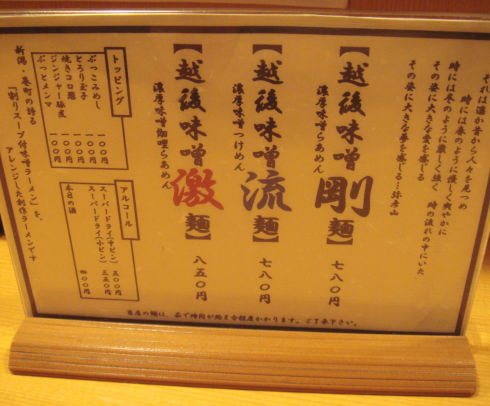 それは遥か昔から人々を見つめ
時には春のように優しく爽やかに
時には冬のように厳しく強く 時の流れの中にいた
その姿に大きな愛を感じる
その姿に大きな夢を感じる…弥彦山
【越後味噌剛麺】七八〇円
濃厚味噌らぁめん
【越後味噌流麺】七八〇円
濃厚味噌つけめん
【越後味噌激麺】八五〇円
濃厚味噌咖哩らぁめん
トッピング
ぶっこみめし 一〇〇円
とろり玉子 一〇〇円
焼きコロ豚
ジンジャー豚皮 一〇〇円
ぶっとメンマ 一〇〇円
アルコール
スーパードライ(中ビン) 五〇〇円
スーパードライ(小ビン) 三五〇円
本日の酒 四〇〇円
新潟・巻町の誇る
「割りスープ付味噌ラーメン」を、
アレンジした創作ラーメンです
当店の麺は、茹で時間が約
程度かかります。ご了承下さい。